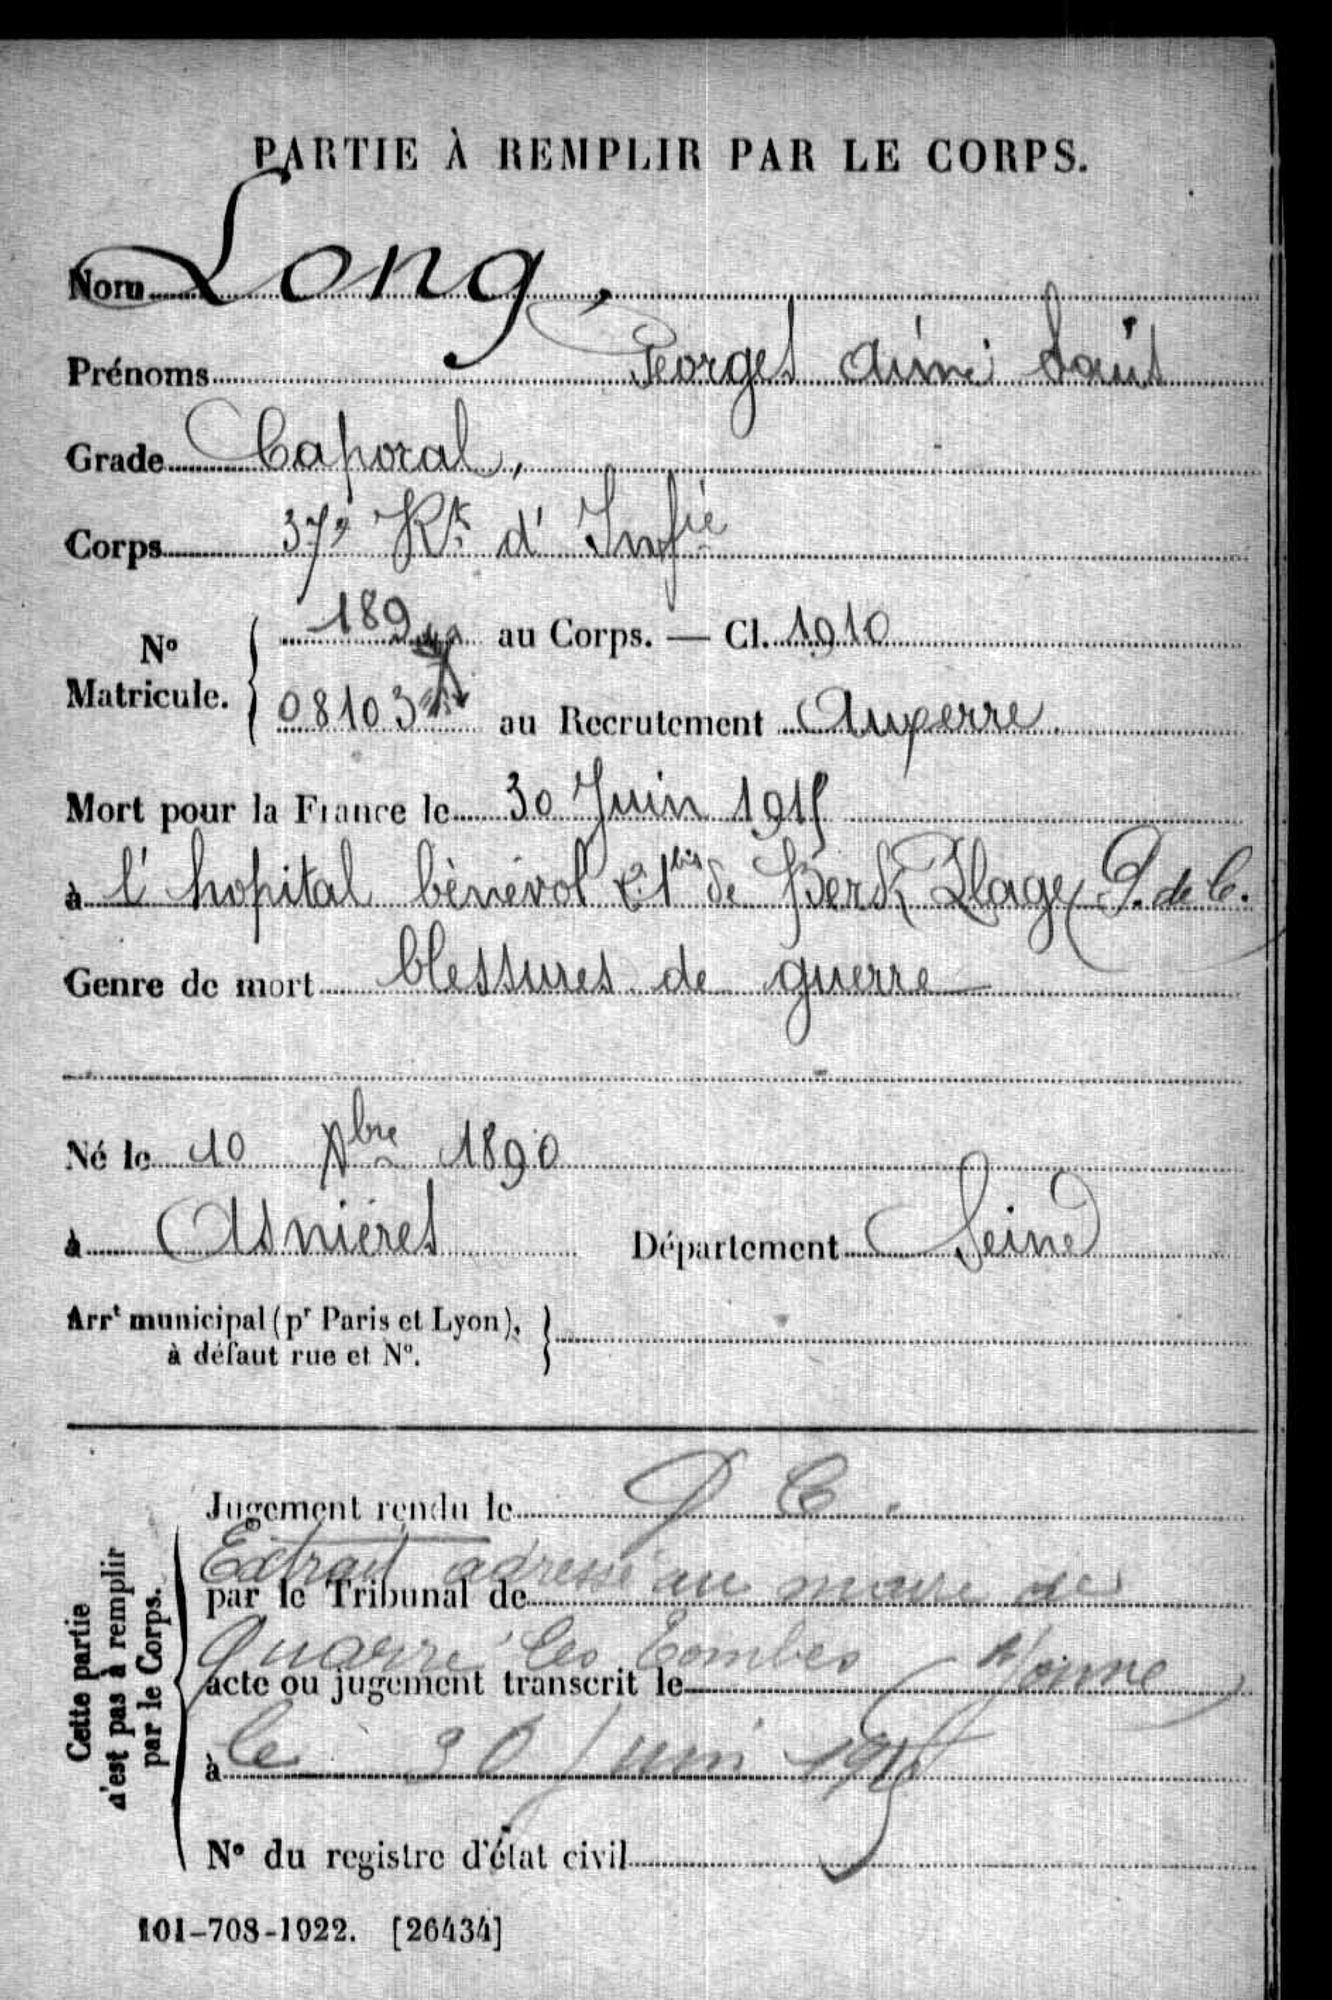 PARTIE À REMPLIR PAR LE CORPS.
Nom Long,
Prénoms Georges Aimé Louis
Grade Caporal,
Corps 37e Rt d'Infie
No Matricule. { 189 au Corps. — Cl. 1910
08103 au Recrutement Auxerre
Mort pour la France le 30 Juin 1915
à l'hopital bènèvol 21 bis de Berk Plage (P. de C.
Genre de mort blessures de guerre
Né le 10 Xbre 1890
à Asnières Département Seine
Arrt municipal (pr Paris et Lyon), à défaut rue et No. }
Cette partie n'est pas à remplir par le Corps.
Jugement rendu le D C.
Extrait adressé au maire de
par le Tribunal de
Quarré les Tombes (Yonne)
acte ou jugement transcrit le
à le 30 Juin 1915
No du registre d'état civil
101-708-1922. [26434]